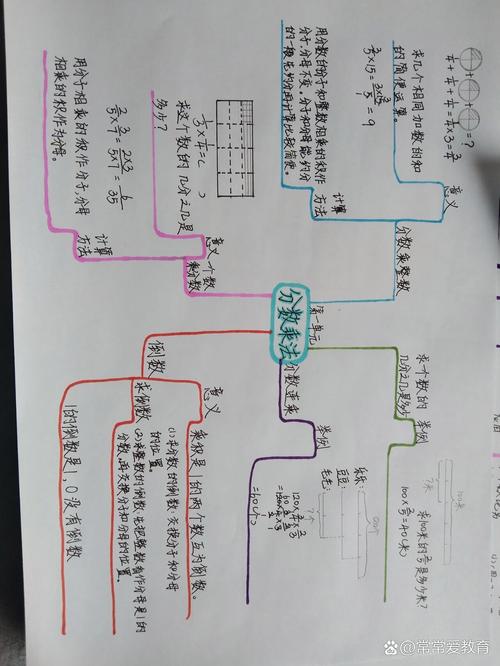 第一单元
分数乘法
分数乘整数
意义
求几个相同加数的和
的简便运算。
+ + =?
1/4+1/4+1/4=1/4×3=3/4
计算
方法
用分数的分子和整数相乘的积作
分子,分母不变,分子和分母能约分
的一般先约分再计算比较简便。
3/5×15=
=9
一个数
乘分数
意义
求这个数的几分之几是
多少?
计算
方法
用分子相乘的积作分子,分母
相乘的积作为分母。
2/5×3/7=2×3/5×7=6/35
倒数
意义
乘积是1的两个数互为倒数。
求倒数
(1)求分数的倒数,交换分子和分母
的位置。
(2)求整数的倒数,先把整数看作分母是1的
分数,再交换分子和分母的位置。
1的倒数是1,0没有倒数
分数连乘
举例
乐乐:
豆豆:
毛毛:
=60(个)
求一个数的
几分之几是多少
举例
100米
?米
求100米的2/5是多少米?
100×2/5=40(米)
@常常爱教育